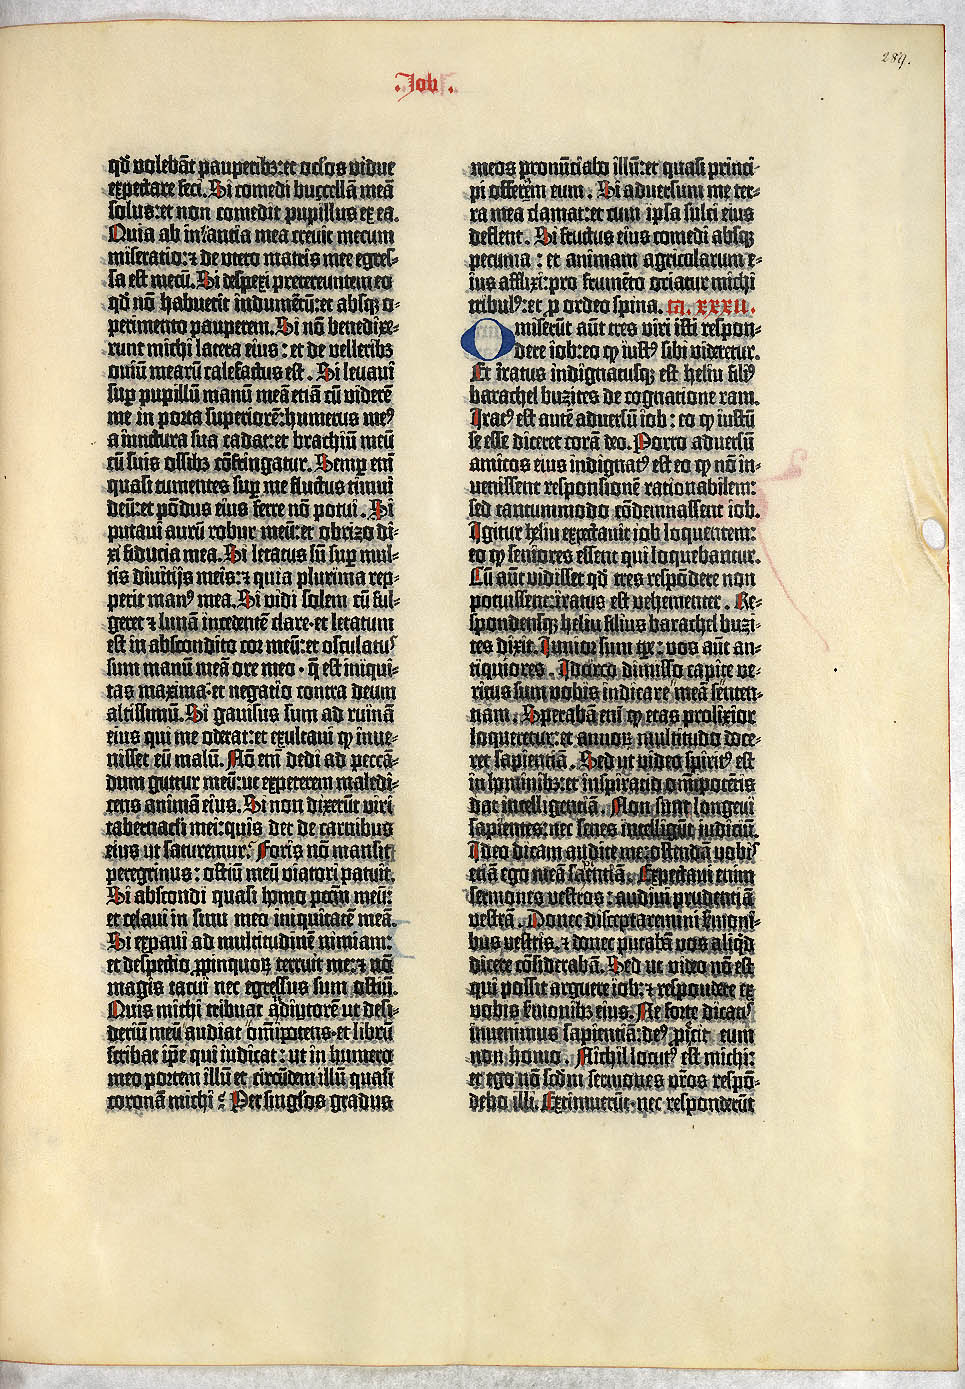 289.
.Job.
qd̄ volebāt pauperibꝫ: et oclos vidue
expectare feci. Si comedi buccellā meā
solus: et non comedit pupillus ex ea.
Quia ab infantia mea crevit mecum
miseratio: ⁊ de utero matris mee egres-
sa est mecū. Si despexi pretereuntem eo
qd̄ nō habuerit indumētū: et absqꝫ o-
perimento pauperem. Si nō benedixe-
runt michi latera eius: et de velleribꝫ
oviū mearū calefactus est. Si levavi
sup pupillū manū meā etiā cū viderē
me in porta superiorē: humerus meꝰ
a iunctura sua cadat: et brachiū meū
cū suis ossibꝫ cōfringatur. Semp em̄
quasi tumentes sup me fluctus timui
deū: et pōdus eius ferre nō potui. Si
putavi aurū robur meū: et obrizo di-
xi fiducia mea. Si letatus sū sup mul-
tis divitijs meis: ⁊ quia plurima rep-
perit manꝰ mea. Si vidi solem cū ful-
geret ⁊ lunā incedentē clare · et letatum
est in abscondito cor meū: et osculatuˢ
sum manū meā ore meo · q̄ est iniqui-
tas maxima: et negatio contra deum
altissimū. Si gavisus sum ad ruinā
eius qui me oderat: et exultavi ꝙ inve-
nisset eū malū. Nō em̄ dedi ad peccā-
dum guttur meū: ut expeterem maledi-
cens animā eius. Si non dixerūt viri
tabernacli mei: quis det de carnibus
eius ut saturemur: Foris nō mansit
peregrinus: ostiū meū viatori patuit.
Si abscondi quasi homo pctm̄ meū:
et celavi in sinu meo iniquitatē meā.
Si expavi ad multitudinē nimiam:
et despectio ꝓpinquoꝝ terruit me: ⁊ nō
magis tacui nec egressus sum ostiū.
Quis michi tribuat adiutorē ut desi-
deriū meū audiat om̄ipotens · et librū
scribat ipē qui iudicat: ut in humero
meo portem illū et circūdem illū quasi
coronā michi: Per singlos gradus
meos pronūciabo illū: et quasi princi-
pi offerā eum. Si adversum me ter-
ra mea clamat: et cum ipsa sulci eius
deflent. Si fructus eius comedi absqꝫ
pecunia: et animam agricolarum e-
ius afflixi: pro frumēto oriatur michi
tribulꝰ: et ꝓ ordeo spina. ca. XXXII.
Omiserūt aūt tres viri isti respon-
dere iob: eo ꝙ iustꝰ sibi videretur.
Et iratus indignatusqꝫ est heliu filiꝰ
barachel buzites de cognatione ram.
Iratꝰ est autē adversū iob: eo ꝙ iustū
se esse diceret corā deo. Porro adversū
amicos eius indignatꝰ est eo ꝙ nō in-
venissent responsionē rationabilem:
sed tantummodo cōdemnassent iob.
Igitur heliu expectavit iob loquentem:
eo ꝙ seniores essent qui loquebantur.
Cū aūt vidisset qd̄ tres respōdere non
potuissent: iratus est vehementer. Re-
spondensqꝫ heliu filius barachel buzi-
tes dixit. Iunior sum tpe: vos aūt an-
tiquiores. Idcirco dimisso capite ve-
ritus sum vobis indicare meā senten-
tiam. Sperabā eni ꝙ etas prolixior
loqueretur: et annoꝝ multitudo doce-
ret sapientiā. Sed ut video spiritꝰ est
in hominibꝫ: et inspiratio om̄ipotētis
dat intelligentiā. Non sunt longevi
sapientes: nec senes intelligūt iudiciū.
Ideo dicam audite me: ostendā vobiˢ
etiā ego meā sapientiā. Expectavi enim
sermones vestros: audivi prudentiā
vestrā. Donec disceptaremini s̄moni-
bus vestris. ⁊ donec putabā vos aliqid
dicere cōsiderabā. Sed ut video nō est
qui possit arguere iob: ⁊ respondere ex
vobis s̄monibꝫ eius. Ne forte dicatiˢ
invenimus sapientiā: deꝰ ꝓiecit eum
non homo. Nichil locutꝰ est michi:
et ego nō scdm sermones vr̄os respō-
debo illi. Extimuerūt · nec responderūt